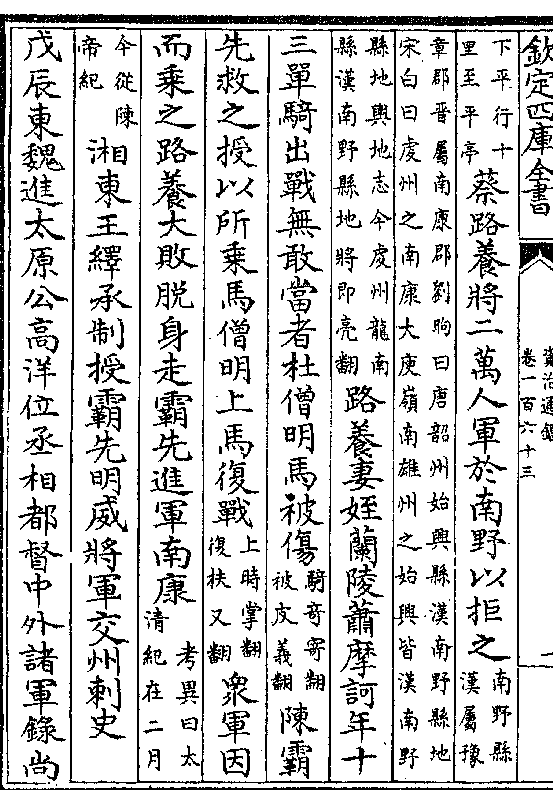 欽定四庫全書
資治通鑑
卷一百六十三
下平行十
里至平亭
蔡路養將二萬人軍於南野以拒之
南野縣
漢屬豫
章郡晉屬南康郡劉昫曰唐韶州始興縣漢南野縣地
宋白曰虔州之南康大庾嶺南雄州之始興皆漢南野
縣地輿地志今虔州龍南
縣漢南野縣地將即亮翻
路養妻姪蘭陵蕭摩訶年十
三單騎出戰無敢當者杜僧明馬被傷
騎奇寄翻
被皮義翻
陳霸
先救之授以所乘馬僧明上馬復戰
上時掌翻
復扶又翻
衆軍因
而乘之路養大敗脱身走霸先進軍南康
考異曰太
清紀在二月
今從陳
帝紀
湘東王繹承制授霸先明威將軍交州刺史
戊辰東魏進太原公高洋位丞相都督中外諸軍錄尚